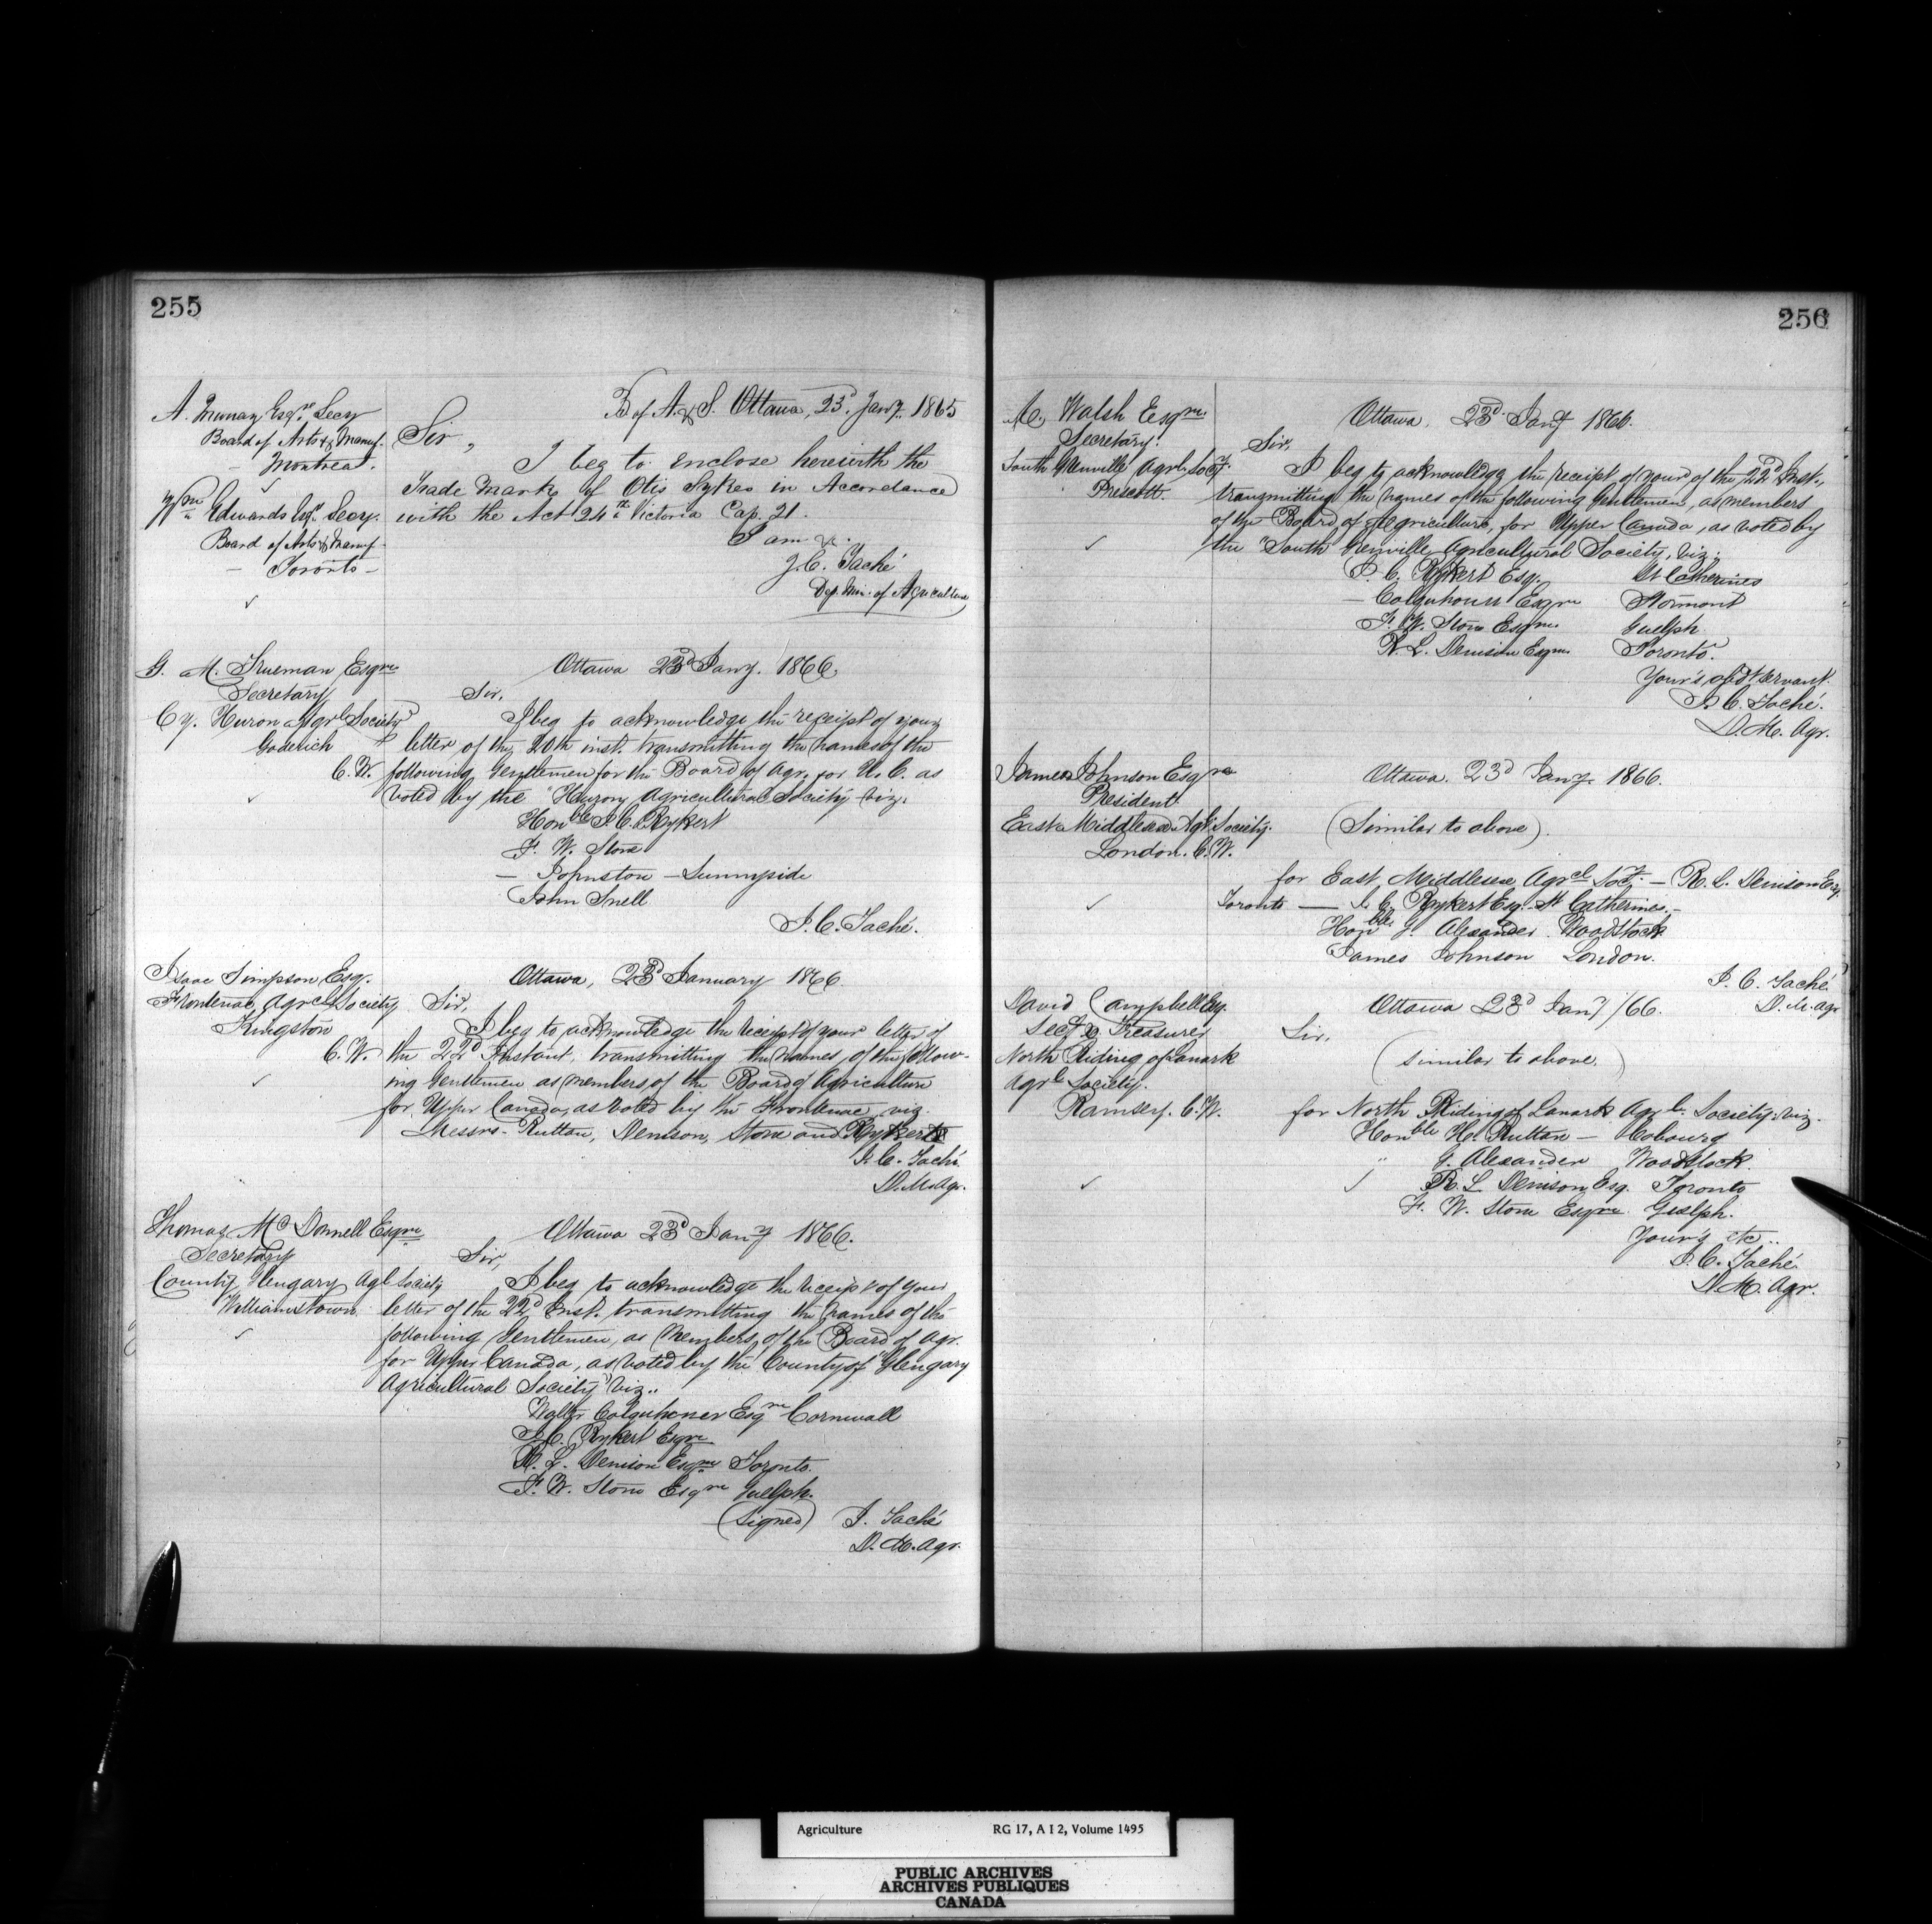 255
A. Murray Esqre. Secy
Board of Arts & Manuf.
– Montreal.
Wm Edwards Esqr. Secy.
Board of Arts & Manuf.
– Toronto –
B of A. & S. Ottawa, 23d. Jany. 1865
Sir,
I beg to enclose herewith the
Trade Mark of Otis Sykes in Accordance
with the Act 24th Victoria Cap. 21.
I am &.
J.C. Taché
Dep. Min. of Agriculture
G. M. Trueman Esqre
Secretary
Cy. Huron Agrl Society
Goderich
C.W.
Ottawa 23d Jany. 1866.
Sir,
I beg to acknowledge the receipt of your
letter of the 20th inst. transmitting the names of the
following Gentlemen for the Board of Agr. for U. C. as
voted by the "Huron Agricultural Society" viz.
Honble J. C. Rykert
F. W. Stone
– Johnston – Sunnyside
John Snell
J. C. Taché.
Isaac Simpson, Esq.
Frontenac Agrcl Society
Kingston
C.W.
Ottawa, 23d January 1866.
Sir,
I beg to acknowledge the receipt of your letter of
the 22d Instant, transmitting the names of the follow-
ing Gentlemen as members of the Board of Agriculture
for Upper Canada, as voted by the Frontenac, viz.
Messrs. Ruttan, Denison, Stone and Rykert
J. C. Taché
D. M. Agr.
Thomas Mc Donnell Esqre
Secretary
County Glengary Agl Society
Williamstown
Ottawa 23d Jany 1866.
Sir,
I beg to acknowledge the receipt of your
letter of the 22d Inst. transmitting the names of the
following Gentlemen, as Members, of the Board of Agr.
for Upper Canada, as voted by the County of "Glengary
Agricultural Society" viz..
Walter Colquhoner Esqre Cornwall
J. C. Rykert Esqre
R. L. Denison Esqre Toronto.
F. W. Stone Esqre Guelph.
(Signed) J. Taché
D. M. Agr.
256
M. Walsh Esqre.
Secretary.
South Grenville Agrl. Socy.
Prescott.
Ottawa, 23d. Jany 1866.
Sir,
I beg to acknowledge the receipt of your of the 22d Inst.,
transmitting the names of the following Gentlemen, as members
of the Board of Agriculture, for Upper Canada, as voted by
the "South Grenville Agricultural Society, viz.
J. C. Rykert Esq. St Catherines
– Colquhoun Esqre Stormont
F. W. Stone Esqre. Guelph
R. L. Denison Esqre. Toronto.
Your's obdt servant
J. C. Taché.
D. M. Agr.
James Johnson Esqre
President
East Middlesex Agl. Society.
London. C.W.
Ottawa. 23d Jany. 1866.
(Similar to above).
for East Middlesex Agrcl Socy. – R. L. Denison Esq.
Toronto — J. C. Rykert Esq. St Catherines. –
Honble G. Alexander Woodstock
James Johnson London.
J. C. Taché
D. M. Agr
David Campbell Esq.
Secy & Treasurer
North Riding of Lanark
Agrl Society.
Ramsey. C.W.
Ottawa 23d Jany /66.
Sir,
(Similar to above.)
for North Riding of Lanark Agrl. Society: viz.
Honble H. Ruttan – Cobourg
" G. Alexander Woodstock.
R. L. Denison Esq. Toronto
F. W. Stone Esqre Guelph.
Yours etc..
J. C. Taché
D. M. Agr.
Agriculture RG 17, A I 2, Volume 1495
PUBLIC ARCHIVES
ARCHIVES PUBLIQUES
CANADA